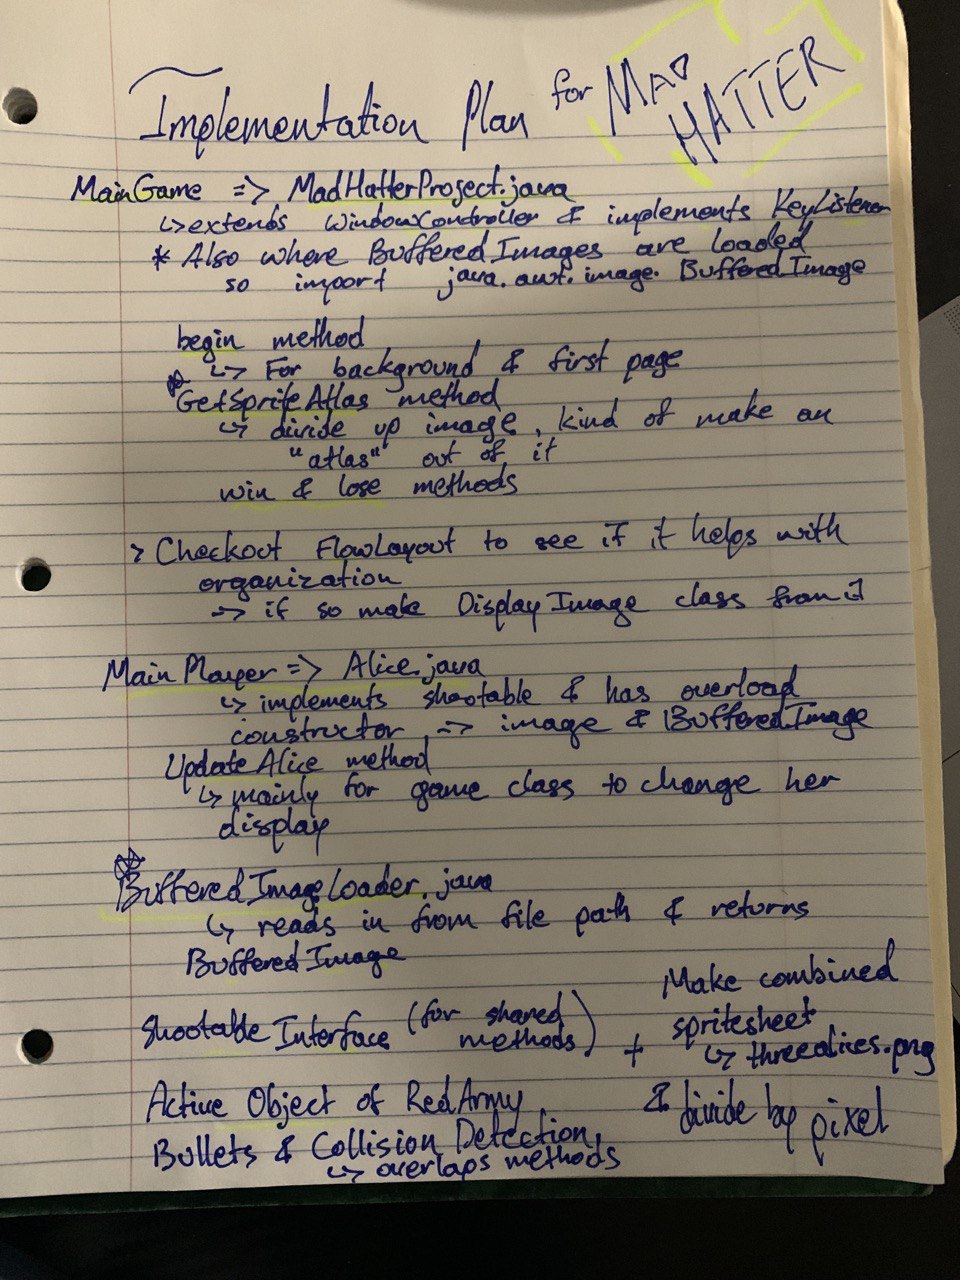 Implementation Plan for MAD HATTER
MainGame => MadHatterProject.java
↳ extends WindowController & implements KeyListener
* Also where BufferedImages are loaded
so import java.awt.image.BufferedImage
begin method
↳ For background & first page
* GetSpriteAtlas method
↳ divide up image, kind of make an
"atlas" out of it
win & lose methods
> Checkout FlowLayout to see if it helps with
organization
↳ if so make DisplayImage class from it
Main Player => Alice.java
↳ implements shootable & has overload
constructor -> image & BufferedImage
UpdateAlice method
↳ mainly for game class to change her
display
* BufferedImageLoader.java
↳ reads in from file path & returns
BufferedImage
Shootable Interface (for shared
methods)
+ Make combined
spritesheet
↳ threealices.png
& divide by pixel
Active Object of RedArmy
Bullets & Collision Detection
↳ overlaps methods